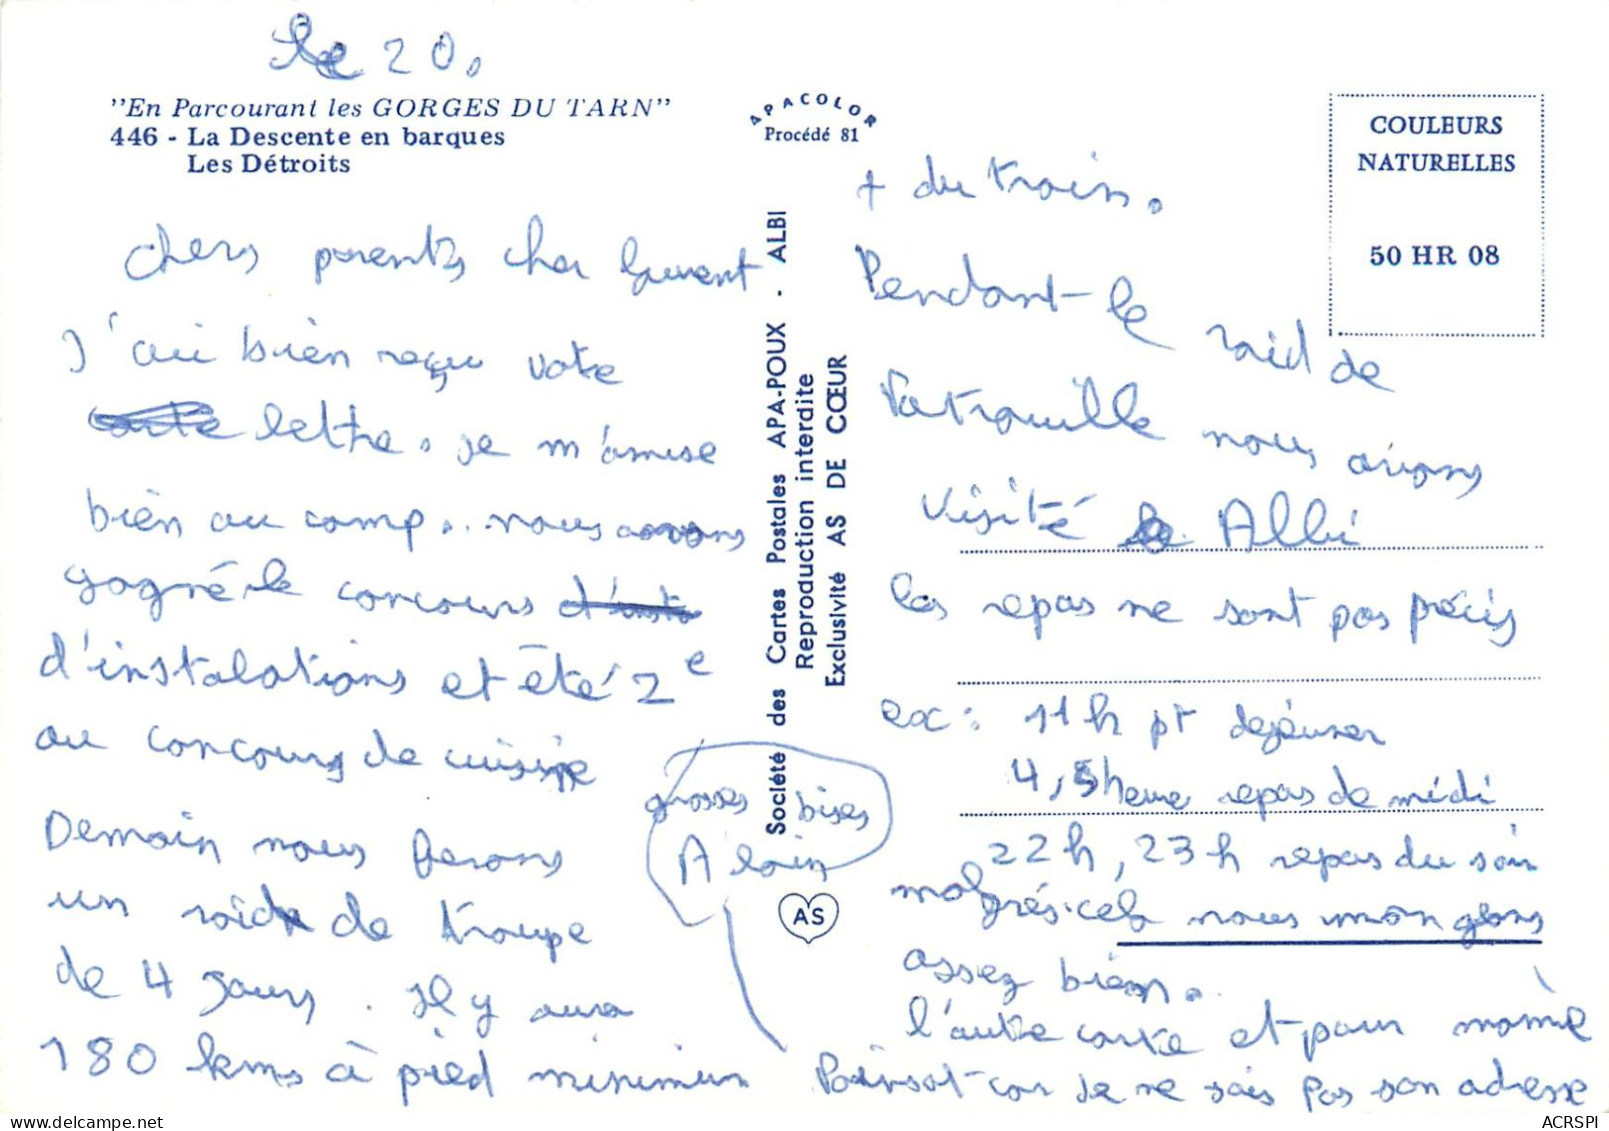 Le 20.
"En Parcourant les GORGES DU TARN"
446 - La Descente en barques
Les Détroits
Chers parents cher laurent
J'ai bien reçu votre
carte lettre. je m'amuse
bien au camp.. nous avons
gagné le concours d'insta
d'instalations et été 2e
au concours de cuisine
Demain nous ferons
un raid de troupe
de 4 jours. Il y aura
180 kms à pied minimum
grosses bises
Alain
APACOLOR
Procédé 81
Société des Cartes Postales APA-POUX - ALBI
Reproduction interdite
Exclusivité AS DE CŒUR
AS
COULEURS
NATURELLES
50 HR 08
+ du train.
Pendant le raid de
Patrouille nous avons
visité Albi
les repas ne sont pas précis
ex: 11h pt dejeuner
4, 5heure repas de midi
22h, 23h repas du soir
malgrés cela nous mangons
assez bien.
l'autre carte et pour mamie
Poinsot car je ne sais pas son adresse
ACRSPI